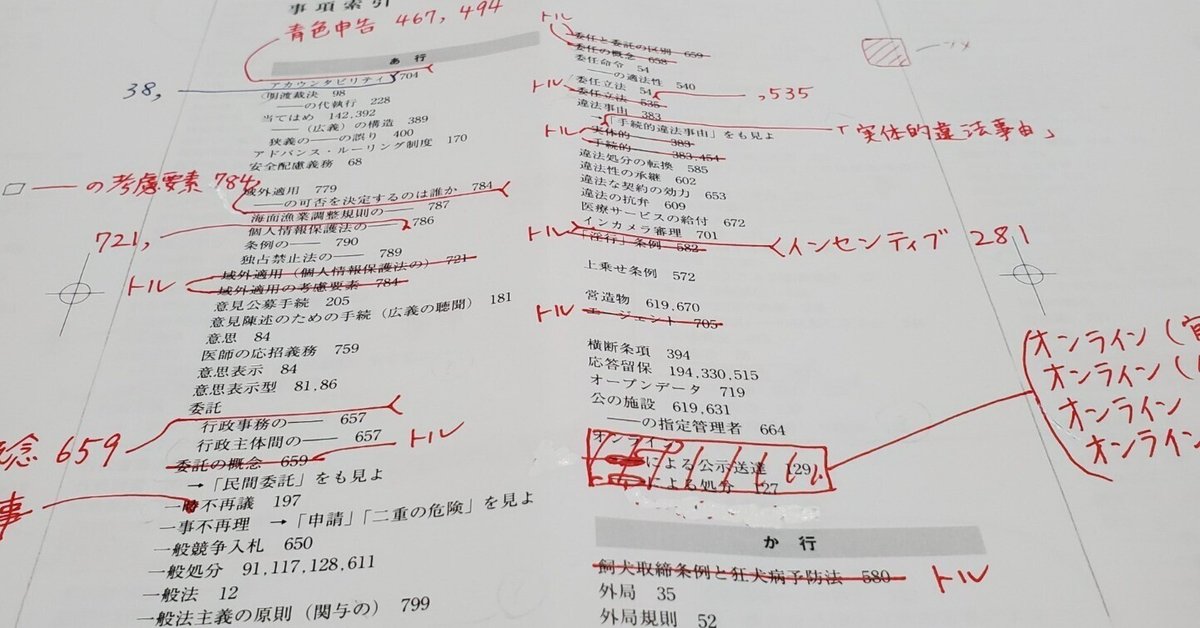 事項索引
青色申告 467, 494
あ 行
38,
アカウンタビリティ 704
明渡裁決 98
——の代執行 228
当てはめ 142,392
——(広義)の構造 389
狭義の——の誤り 400
アドバンス・ルーリング制度 170
安全配慮義務 68
——の考慮要素 784
域外適用 779
——の可否を決定するのは誰か 784
海面漁業調整規則の—— 787
721,
個人情報保護法の—— 786
条例の—— 790
独占禁止法の—— 789
トル
域外適用(個人情報保護法の) 721
域外適用の考慮要素 784
意見公募手続 205
意見陳述のための手続(広義の聴聞) 181
意思 84
医師の応招義務 759
意思表示 84
意思表示型 81,86
委託
行政事務の—— 657
行政主体間の—— 657
念 659
トル
委託の概念 659
→「民間委託」をも見よ
事
一時不再議 197
一事不再理 →「申請」「二重の危険」を見よ
一般競争入札 650
一般処分 91,117,128,611
一般法 12
一般法主義の原則(関与の) 799
トル
委任と委託の区別 659
委任の概念 658
委任命令 54
——の適法性 540
委任立法 54
,535
トル
委任立法 535
違法事由 383
→「手続的違法事由」をも見よ
「実体的違法事由」
トル
実体的—— 383
手続的—— 383,454
違法処分の転換 585
違法性の承継 602
違法な契約の効力 653
違法の抗弁 609
医療サービスの給付 672
インカメラ審理 701
インセンティブ 281
トル
「淫行」条例 582
上乗せ条例 572
営造物 619,670
トル
エージェント 705
横断条項 394
応答留保 194,330,515
オープンデータ 719
公の施設 619,631
——の指定管理者 664
オンライン
による公示送達 129
による処分 127
オンライン(
オンライン(
オンライン
オンライン
か 行
飼犬取締条例と狂犬病予防法 580
トル
外局 35
外局規則 52